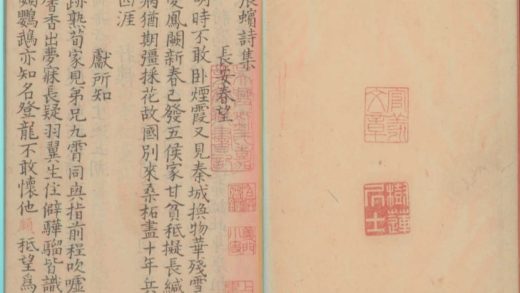 樹蓮居士
蠙詩集
長安春望
明時不敢卧煙霞又見秦城換物華殘雪
鳳闕新春已發五侯家甘貧秪擬長緘
病猶期彊採花故國別來桑柘盡十年兵
西涯
獻所知
跡熟荀家見弟兄九霄同與指前程吹噓
香出夢寐長疑羽翼生住僻驊騮皆識
鸚鵡亦知名登龍不敢懷他願秪望為